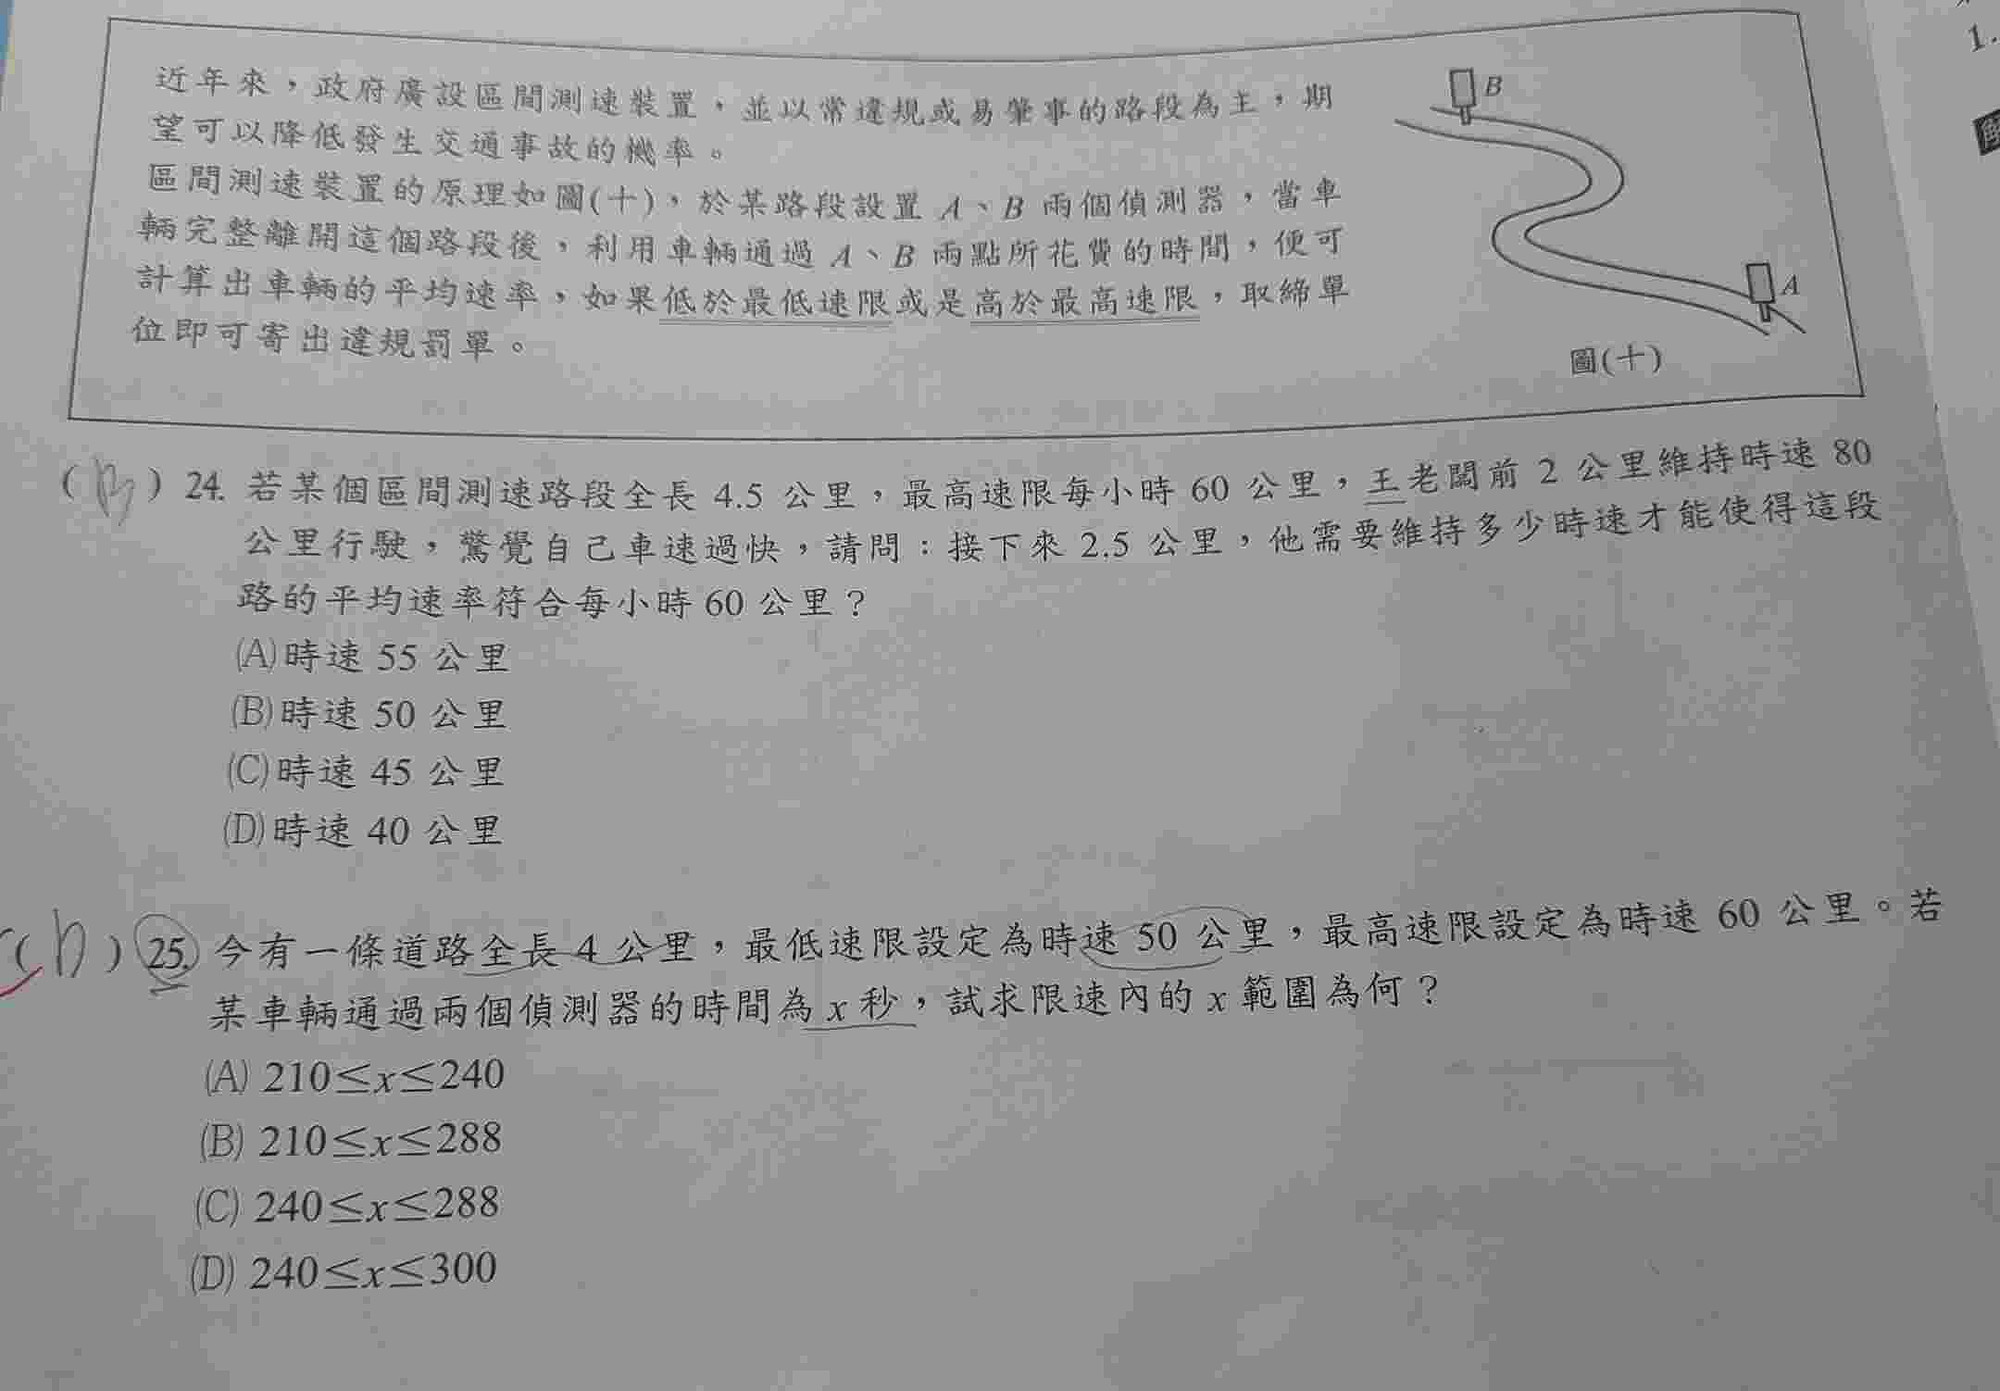 近年來，政府廣設區間測速裝置，並以常違規或易肇事的路段為主，期
望可以降低發生交通事故的機率。
區間測速裝置的原理如圖(十)，於某路段設置 A、B 兩個偵測器，當車
輛完整離開這個路段後，利用車輛通過 A、B 兩點所花費的時間，便可
計算出車輛的平均速率，如果低於最低速限或是高於最高速限，取締單
位即可寄出違規罰單。
B
A
圖(十)
1.
(B) 24. 若某個區間測速路段全長 4.5 公里，最高速限每小時 60 公里，王老闆前 2 公里維持時速 80
公里行駛，驚覺自己車速過快，請問：接下來 2.5 公里，他需要維持多少時速才能使得這段
路的平均速率符合每小時 60 公里？
(A) 時速 55 公里
(B) 時速 50 公里
(C) 時速 45 公里
(D) 時速 40 公里
( ) 25. 今有一條道路全長 4 公里，最低速限設定為時速 50 公里，最高速限設定為時速 60 公里。若
某車輛通過兩個偵測器的時間為 x 秒，試求限速內的 x 範圍為何？
(A) 210≤x≤240
(B) 210≤x≤288
(C) 240≤x≤288
(D) 240≤x≤300